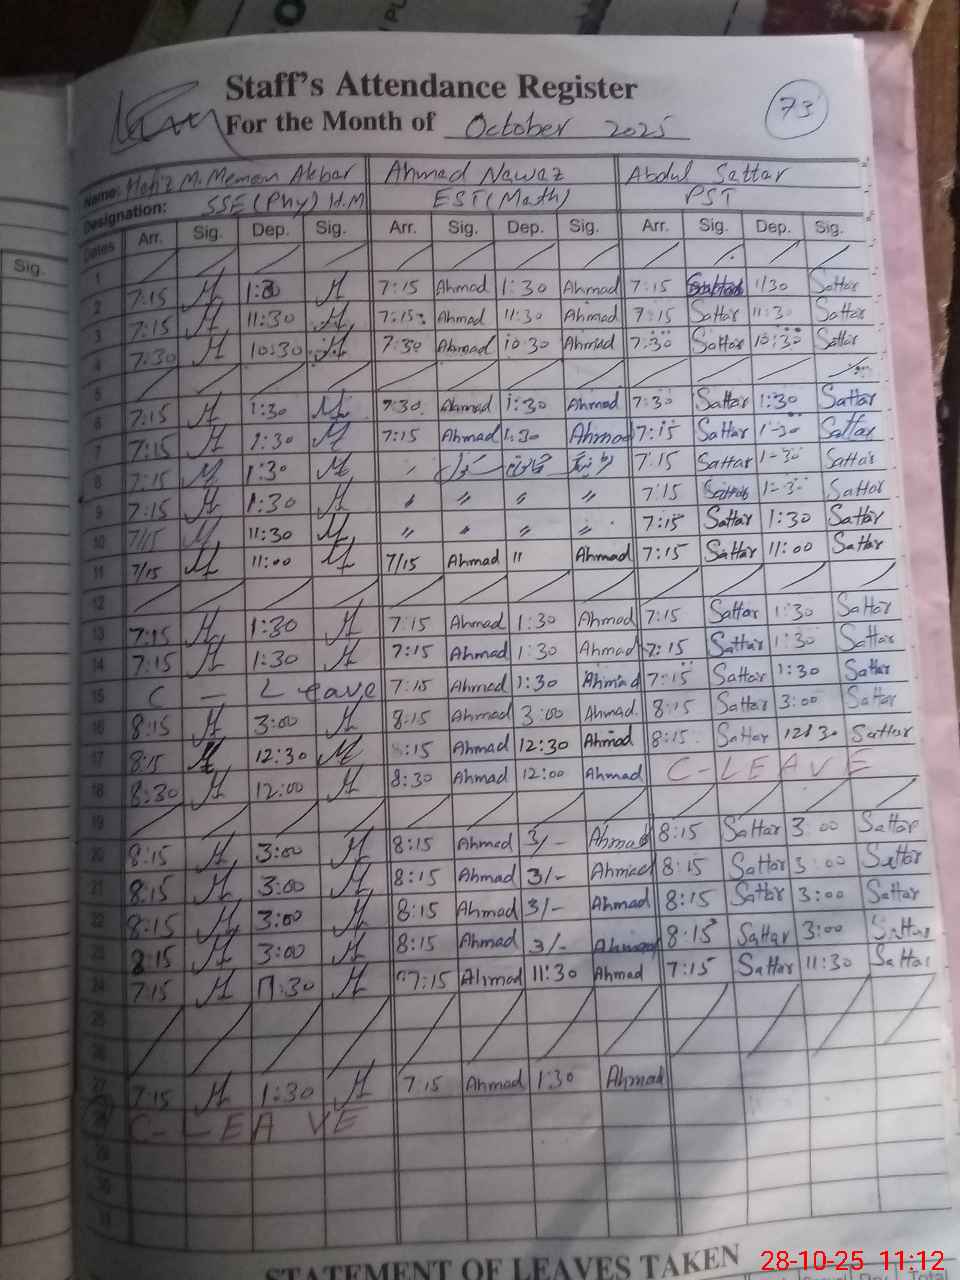 Staff's Attendance Register
For the Month of October 2025
73
Name: M. Memon Akbar Ahmad Nawaz Abdul Sattar
Designation: SSE (Phy) H.M EST (Math) PST
Dates Arr. Sig. Dep. Sig. Arr. Sig. Dep. Sig. Arr. Sig. Dep. Sig.
Sig.
1
2 7:15 M 1:30 M 7:15 Ahmad 1:30 Ahmad 7:15 Sattar 1/30 Sattar
3 7:15 M 11:30 M 7:15 Ahmad 11:30 Ahmad 7:15 Sattar 11:30 Sattar
4 7:30 M 10:30 M 7:30 Ahmad 10:30 Ahmad 7:30 Sattar 10:30 Sattar
5
6 7:15 M 1:30 M 7:30 Ahmad 1:30 Ahmad 7:30 Sattar 1:30 Sattar
7 7:15 M 1:30 M 7:15 Ahmad 1:30 Ahmad 7:15 Sattar 1-30 Sattar
8 7:15 M 1:30 M 7:15 Sattar 1-30 Sattar
9 7:15 M 1:30 M 〃 〃 〃 〃 7:15 Sattar 1-30 Sattar
10 7/15 M 11:30 M 〃 〃 〃 〃 7:15 Sattar 1:30 Sattar
11 7/15 M 11:00 M 7/15 Ahmad 11 Ahmad 7:15 Sattar 11:00 Sattar
12
13 7:15 M 1:30 M 7:15 Ahmad 1:30 Ahmad 7:15 Sattar 1:30 Sattar
14 7:15 M 1:30 M 7:15 Ahmad 1:30 Ahmad 7:15 Sattar 1:30 Sattar
15 C - Leave 7:15 Ahmad 1:30 Ahmad 7:15 Sattar 1:30 Sattar
16 8:15 M 3:00 M 8:15 Ahmad 3:00 Ahmad 8:15 Sattar 3:00 Sattar
17 8:15 M 12:30 M 8:15 Ahmad 12:30 Ahmad 8:15 Sattar 12:30 Sattar
18 8:30 M 12:00 M 8:30 Ahmad 12:00 Ahmad C-LEAVE
19
20 8:15 M 3:00 M 8:15 Ahmad 3/- Ahmad 8:15 Sattar 3:00 Sattar
21 8:15 M 3:00 M 8:15 Ahmad 3/- Ahmad 8:15 Sattar 3:00 Sattar
22 8:15 M 3:00 M 8:15 Ahmad 3/- Ahmad 8:15 Sattar 3:00 Sattar
23 8:15 M 3:00 M 8:15 Ahmad 3/- Ahmad 8:15 Sattar 3:00 Sattar
24 7:15 M 11:30 M 7:15 Ahmad 11:30 Ahmad 7:15 Sattar 11:30 Sattar
25
26
27 7:15 M 1:30 M 7:15 Ahmad 1:30 Ahmad
28 C-LEAVE
29
30
31
STATEMENT OF LEAVES TAKEN
28-10-25 11:12